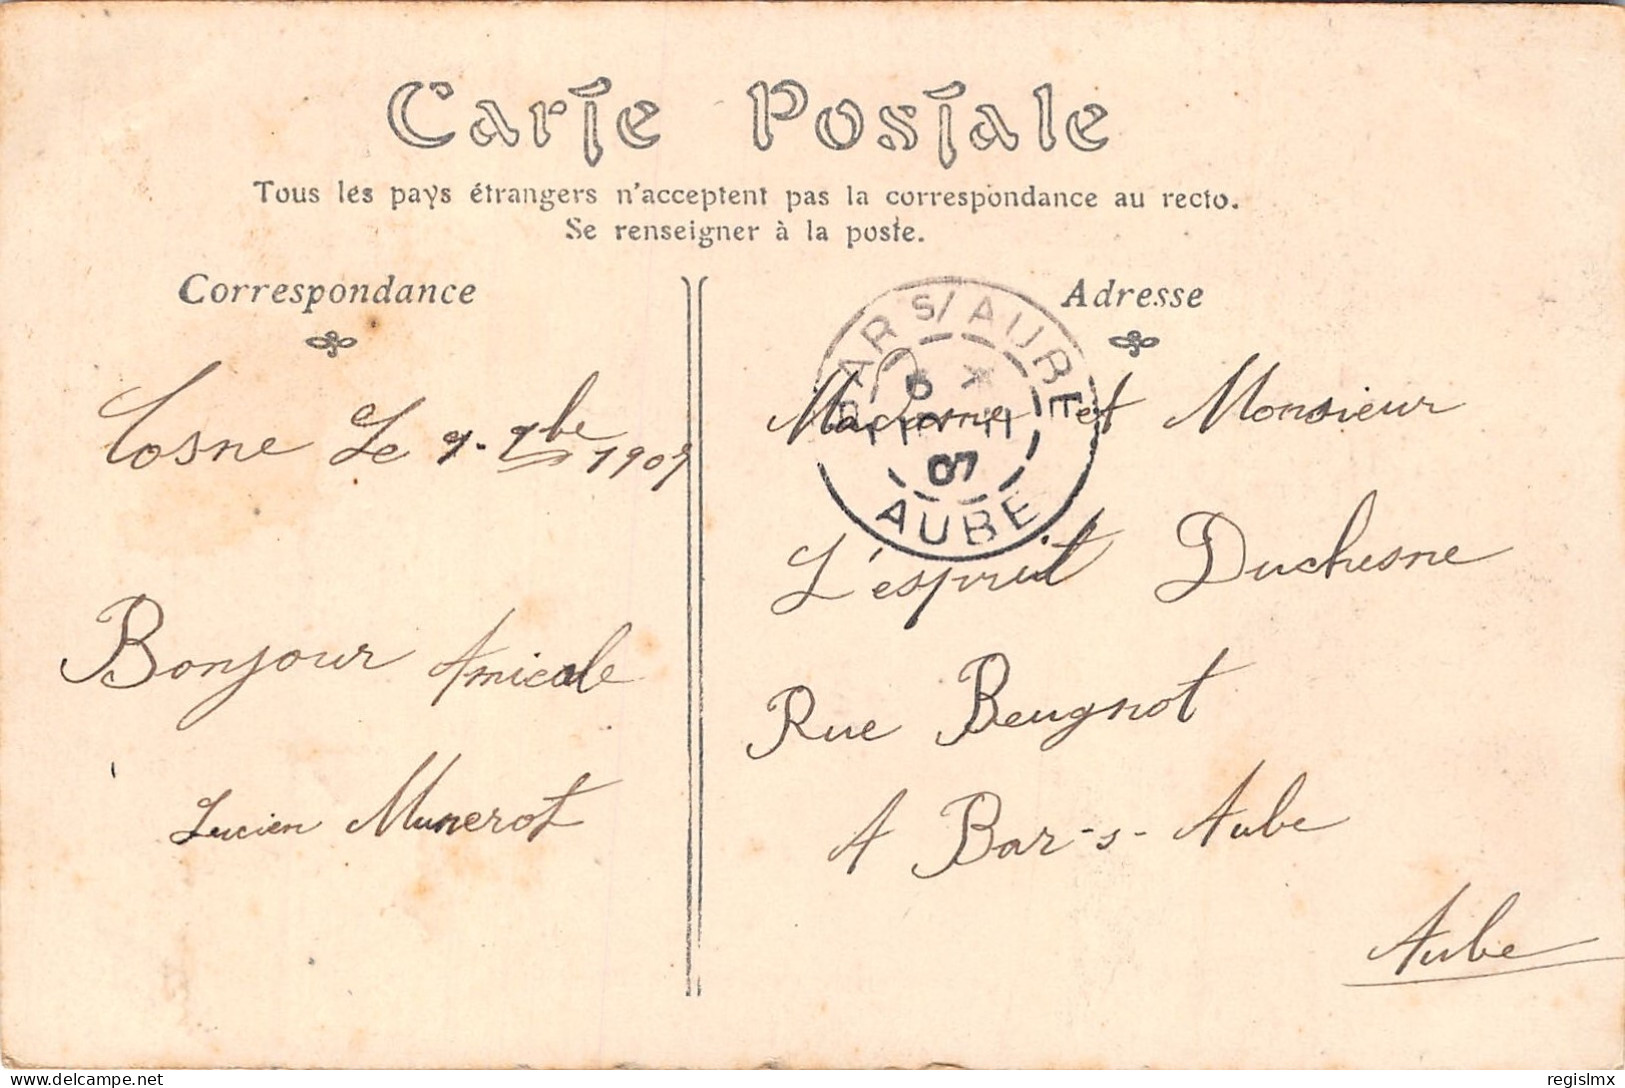 Carte Postale
Tous les pays étrangers n'acceptent pas la correspondance au recto.
Se renseigner à la poste.
Correspondance
Cosne Le 7-7bre 1907
Bonjour Amicale
Lucien Munerot
Adresse
BAR S/ AUBE
07
AUBE
Madame et Monsieur
L'esprit Duchesne
Rue Beugnot
A Bar-s-Aube
Aube
regislmx